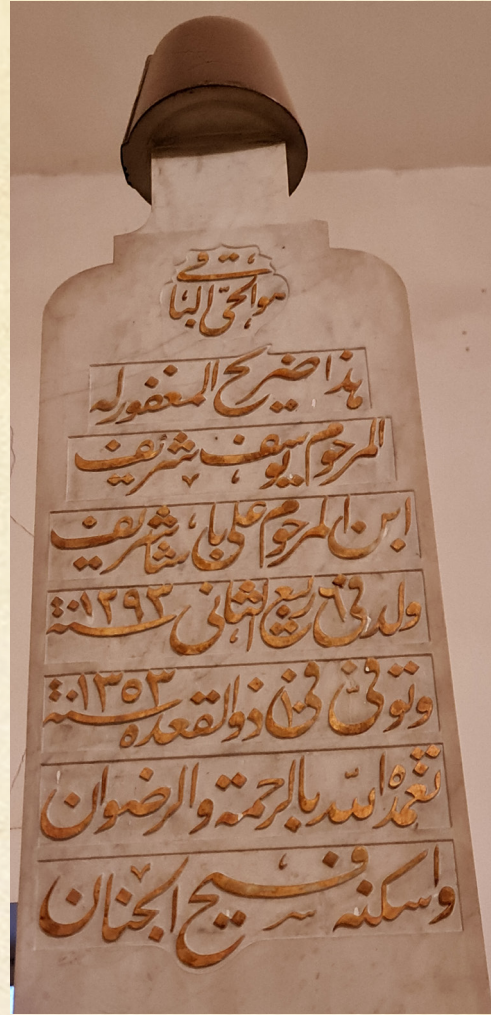 هو الحي الباقي
هذا ضريح المغفور له
المرحوم يوسف شريف
ابن المرحوم علي باشا شريف
ولد في ٦ ربيع الثاني سنة ١٢٩٣
وتوفي في ١٠ ذو القعدة سنة ١٣٥٣
تغمده الله بالرحمة والرضوان
واسكنه فسيح الجنان